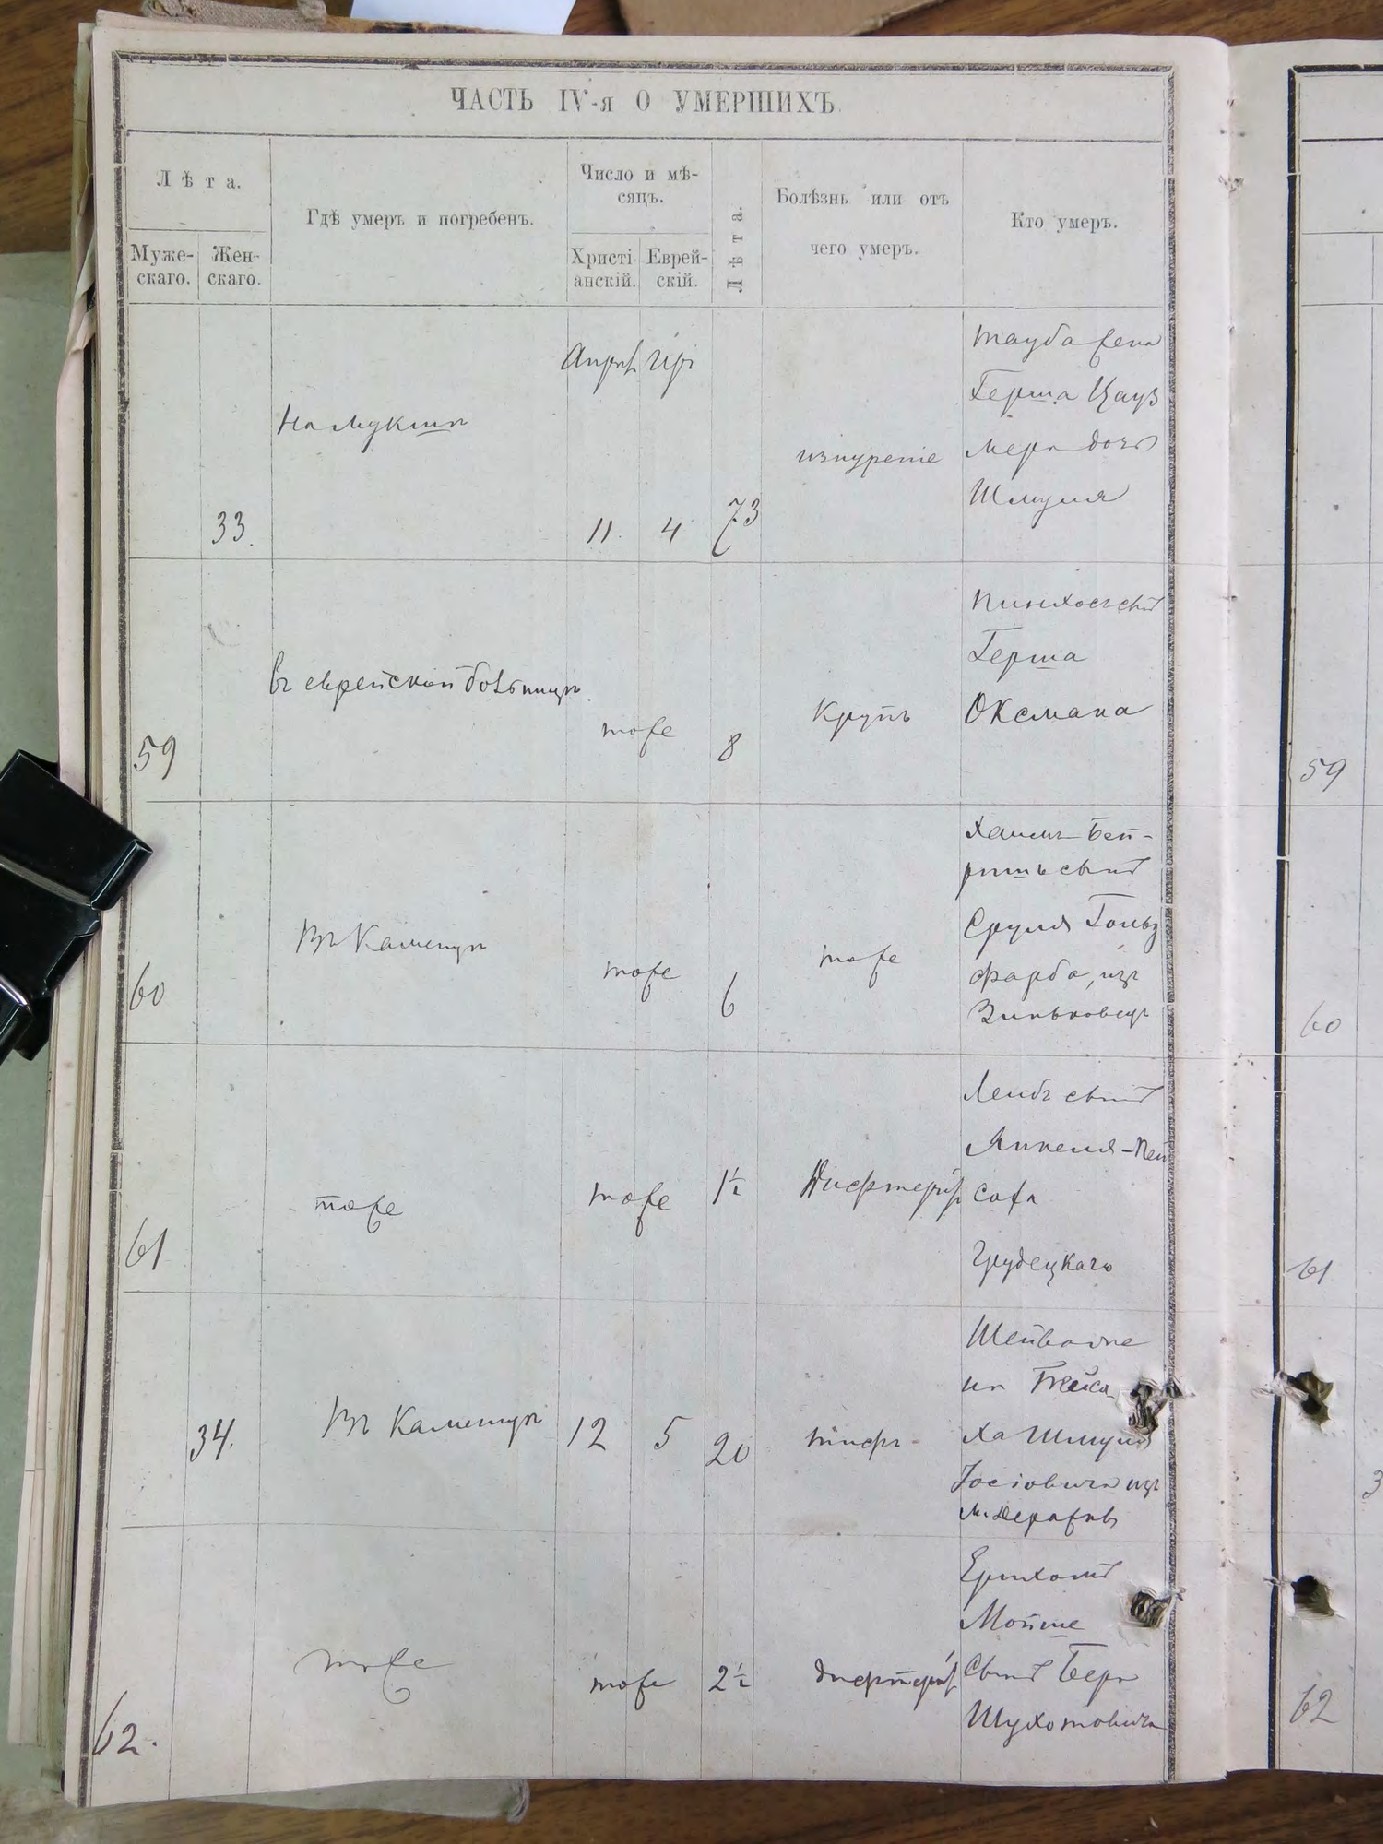 ЧАСТЬ IV-я О УМЕРШИХЪ.
Лѣта.
Муже-
скаго.
Жен-
скаго.
Гдѣ умеръ и погребенъ.
Число и мѣ-
сяцъ.
Христі
анскій.
Еврей-
скій.
Лѣта.
Болѣзнь или отъ
чего умеръ.
Кто умеръ.
33.
Апрѣ
11.
4
73
изнуреніе
тауба жена
Герша Цауз
мера дочь
Шмуля
59
въ еврейской больницѣ
тоже
8
Крупъ
Пинхосъ сынъ
Герша
Оксмана
60
Въ Каменцѣ
тоже
6
тоже
Хаимъ Бей-
ришъ сынъ
Сруля Гольд
фарба, изъ
Зиньковецъ
61
тоже
тоже
1½
Дифтерій
Лейбъ сынъ
Янкеля-Пей
саха
Грудецкаго
34.
Въ Каменцѣ
12
5
20
тифъ
Ха Шмуля
Іосіовича изъ
62.
тоже
тоже
2½
дифтерій
Мойше
сынъ Бера
59
60
61
3
62